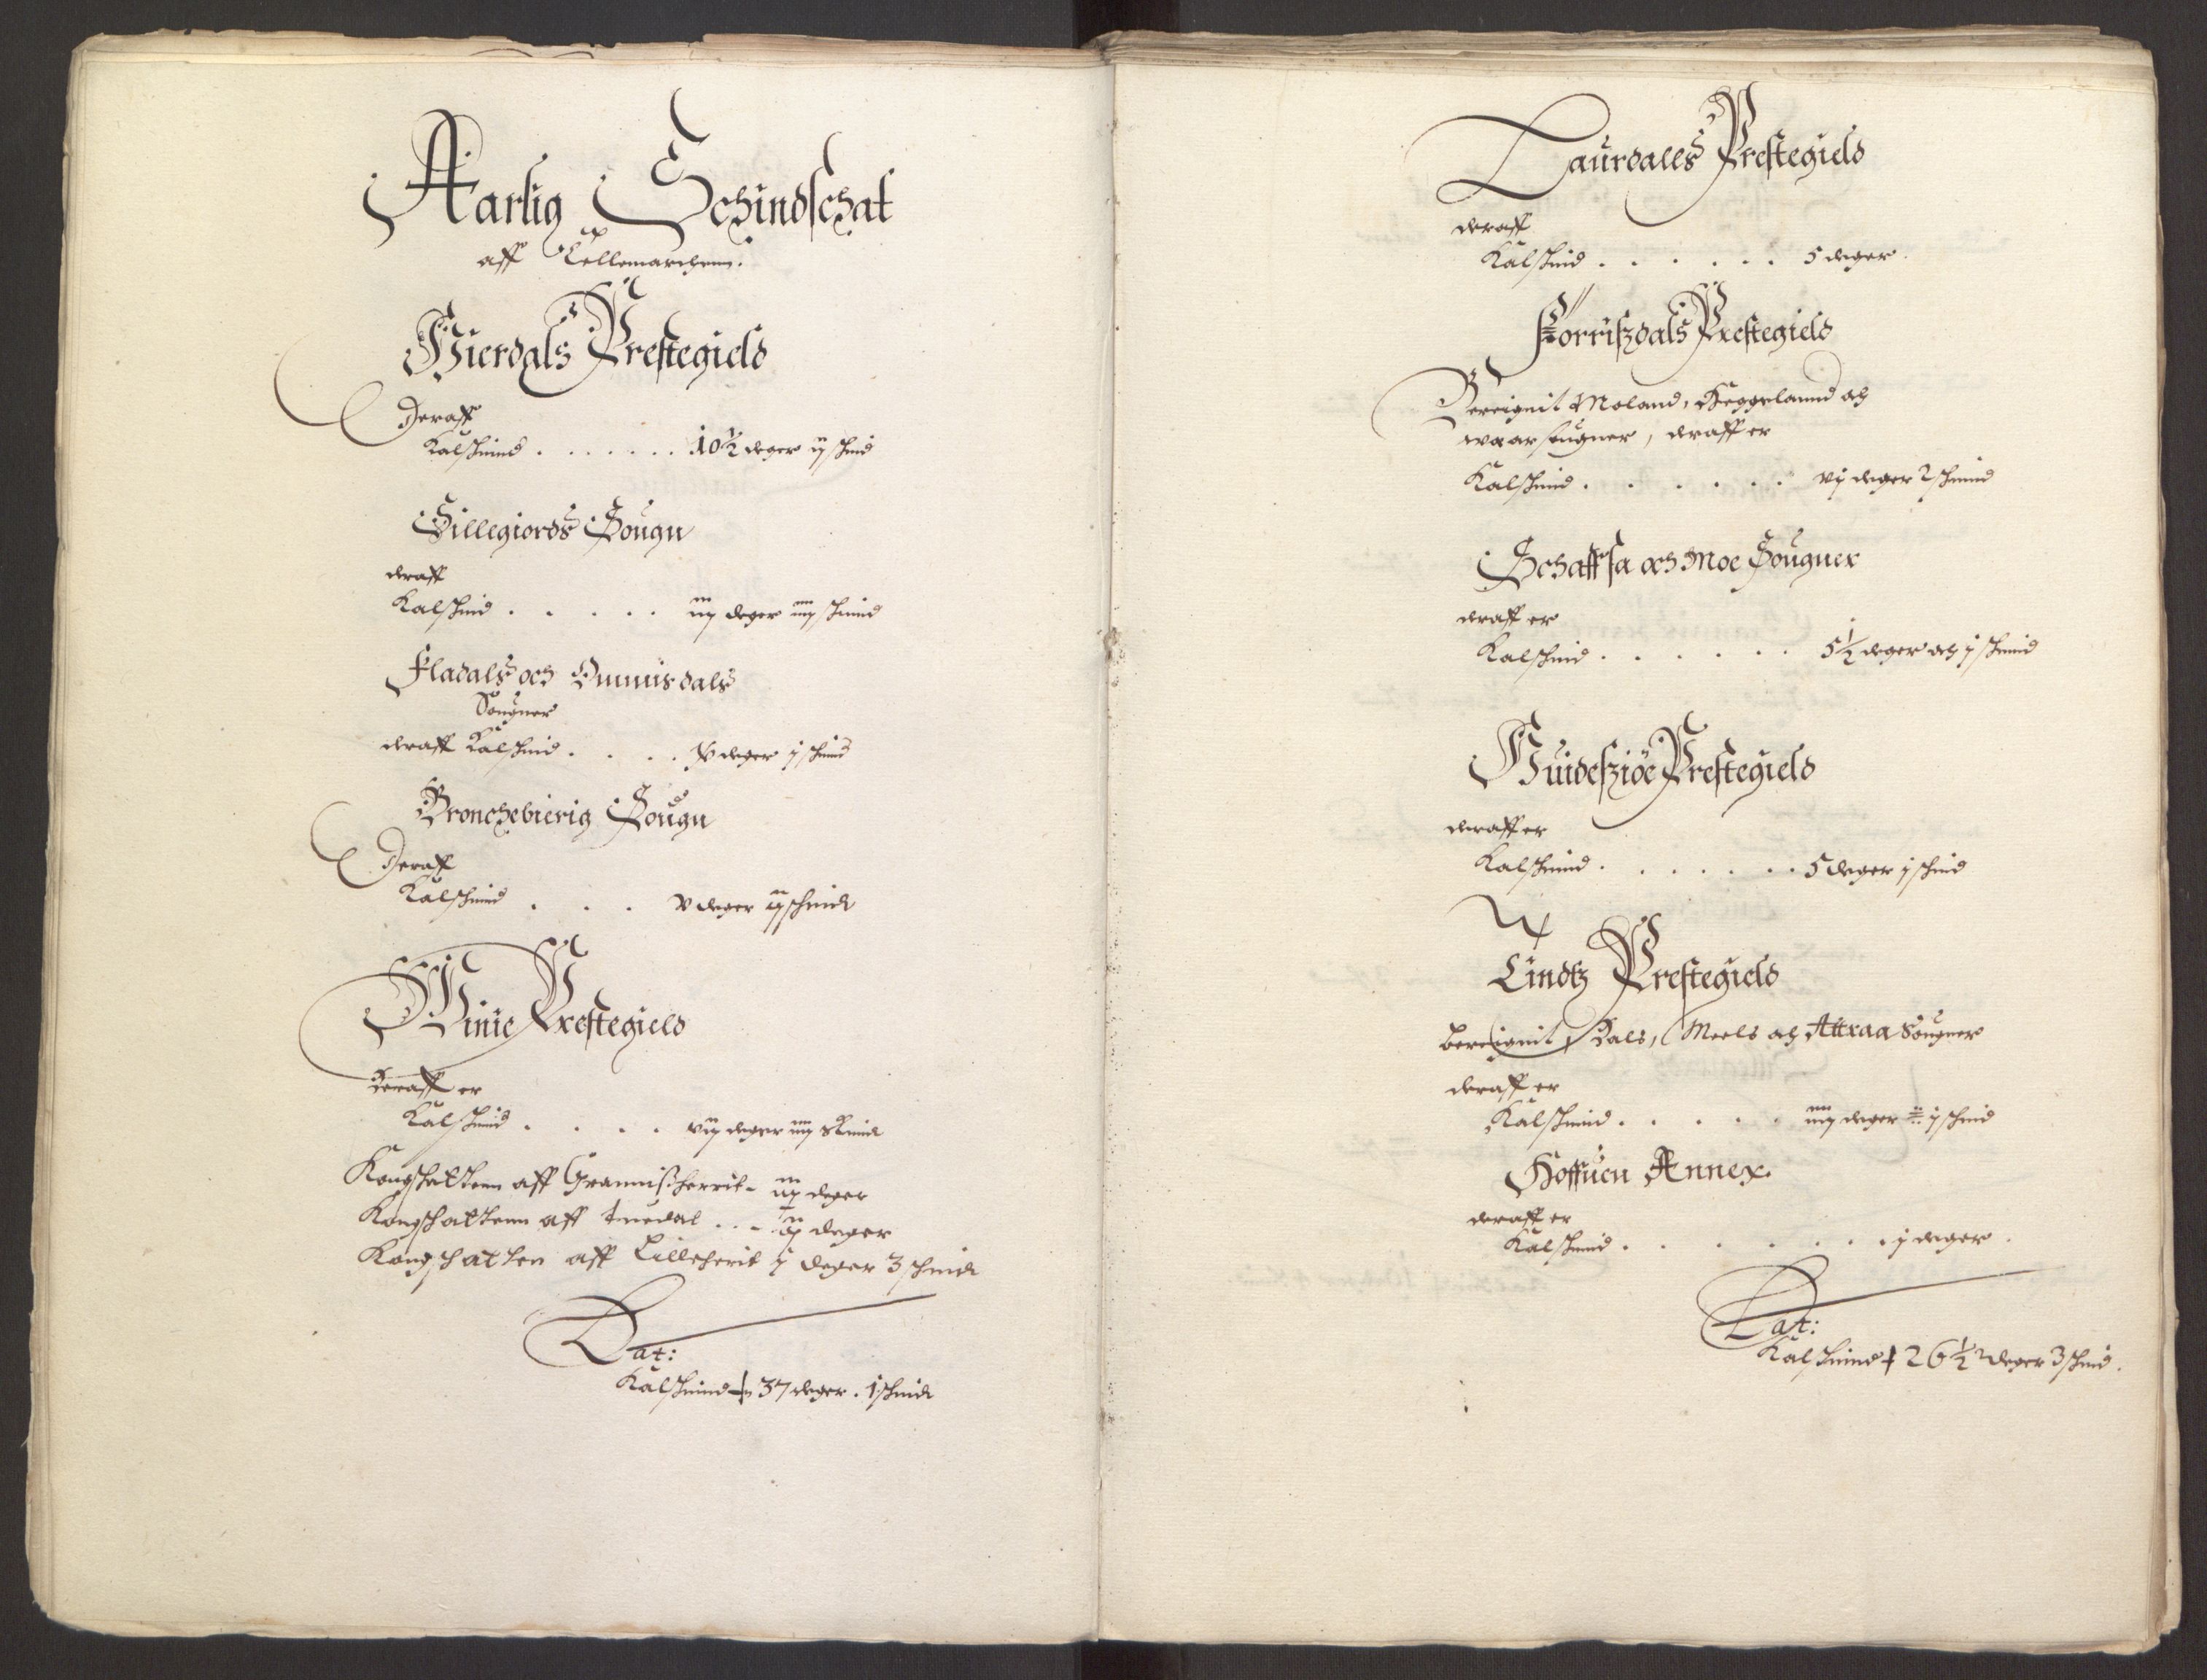 Aarlig Schindschat
aff Tellemarchenn.
Hierdals Prestegield
Deraff
Kalschind . . . . . . 10½ deger ij schind
Sillegiords Sougn
deraff
Kalschind . . . . . iiij deger iiij schind
Fladals och Brunnisdals
Sougner
deraff Kalschind . . . . V deger j schind
Bronchebierig Sougn
Deraff
Kalschind . . . V deger iij schind
Winie Prestegield
Deraff er
Kalschind . . . . vij deger iiij skind
Kongschattenn aff Grannißherrit - iij deger
Kongschattenn aff tuedal . . - ij deger
Kongschatten aff Lilleherit j deger 3 schind
Lat:
Kalschind 37 deger . 1 schind
Laurdalls Prestegield
deraff
Kalschind . . . . . . 5 deger.
Forriszdals Prestegield
Bereignit Moland, Heggelannd och
waar sougner, deraff er
Kalschind . . . . . . vj deger 2 schind
Schaffsa och Moe Sougner
deraff er
Kalschind . . . . . . 5½ deger och j schind
Huideszióe Prestegield
deraff er
Kalschind . . . . . . 5 deger j schind
Tindtz Prestegield
bereignit Dals, Meels och Attraa Sougner
deraff er
Kalschind . . . . . iiij deger ij schind
Hoffuen Annex.
deraff er
Kalschind . . . . . . . j deger.
Lat:
Kalschind 26½ deger 3 schind.